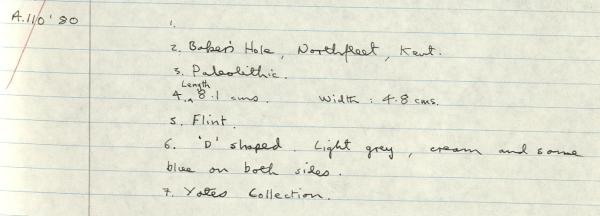 A.110'80
1.
2. Baker's Hole, Northfleet, Kent.
3. Paleolithic.
4. Length 8.1 cms. Width : 4.8 cms.
5. Flint.
6. 'D' shaped. Light grey, cream and some
blue on both sides.
7. Yates Collection.